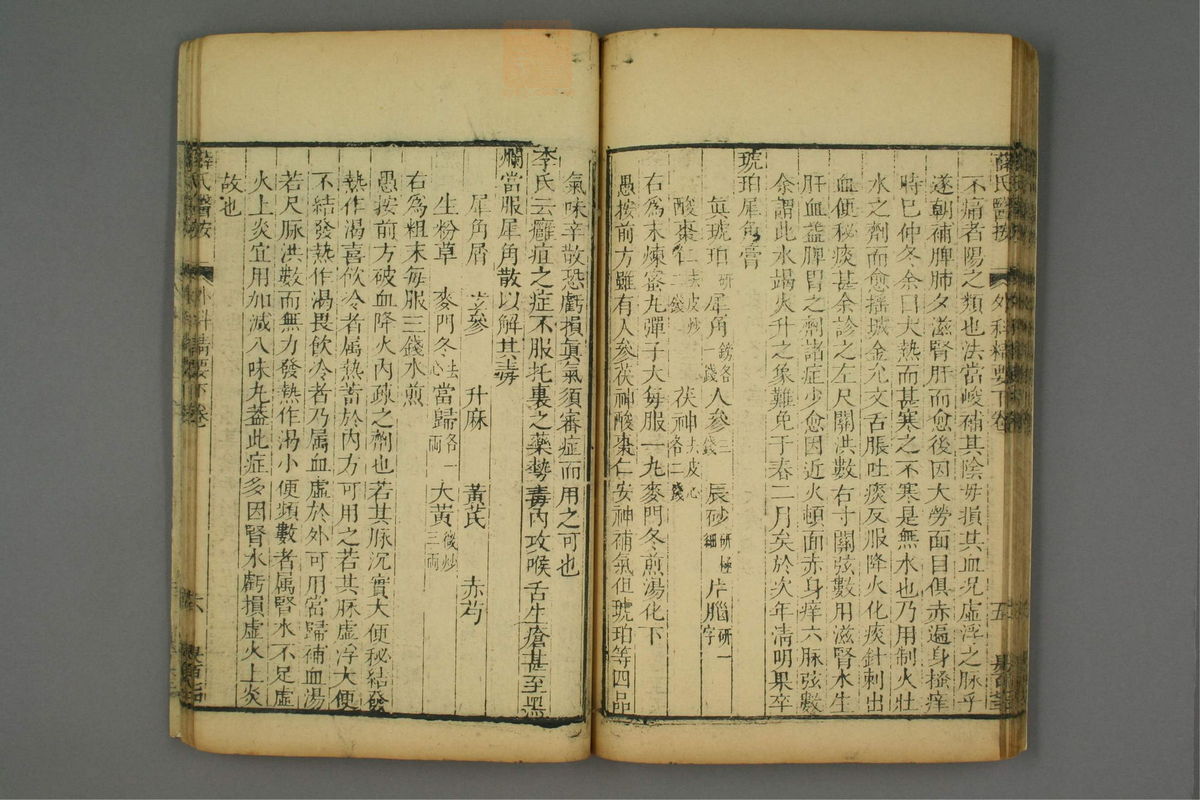 薛氏醫按 外科精要下卷 五
不痛者陽之類也法當峻補其陰毋損其血况虛浮之脉乎
遂朝補脾肺夕滋腎肝而愈後因大勞面目俱赤遍身搔痒
時已仲冬余曰大熱而甚寒之不寒是無水也乃用制火壯
水之劑而愈搖城金允文舌脹吐痰反服降火化痰針刺出
血便秘痰甚余診之左尺關洪數右寸關弦數用滋腎水生
肝血益脾胃之劑諸症少愈因近火頓面赤身痒六脉弦數
余謂此水竭火升之象難免于春二月矣於次年清明果卒
琥珀犀角膏
真琥珀研 犀角鎊各一錢 人參三錢 辰砂研極細 片腦研一字
酸棗仁去皮炒二錢 茯神去皮心各二錢
右為末煉蜜丸彈子大每服一丸麥門冬煎湯化下
愚按前方雖有人參茯神酸棗仁安神補氣但琥珀等四品
氣味辛散恐虧損真氣須審症而用之可也
李氏云癰疽之症不服托裏之藥勢毒內攻喉舌生瘡甚至黑
爛當服犀角散以解其毒
犀角屑 玄參 升麻 黃芪 赤芍
生粉草 麥門冬去心 當歸各一兩 大黃微炒三兩
右為粗末每服三錢水煎
愚按前方破血降火內疎之劑也若其脉沉實大便秘結發
熱作渴喜飲冷者属熱苦於內方可用之若其脉虛浮大便
不結發熱作渴畏飲冷者乃属血虛於外可用當歸補血湯
若尺脉洪數而無力發熱作渴小便頻數者属腎水不足虛
火上炎宜用加減八味丸蓋此症多因腎水虧損虛火上炎
故也
薛氏醫按 外科精要下卷 六